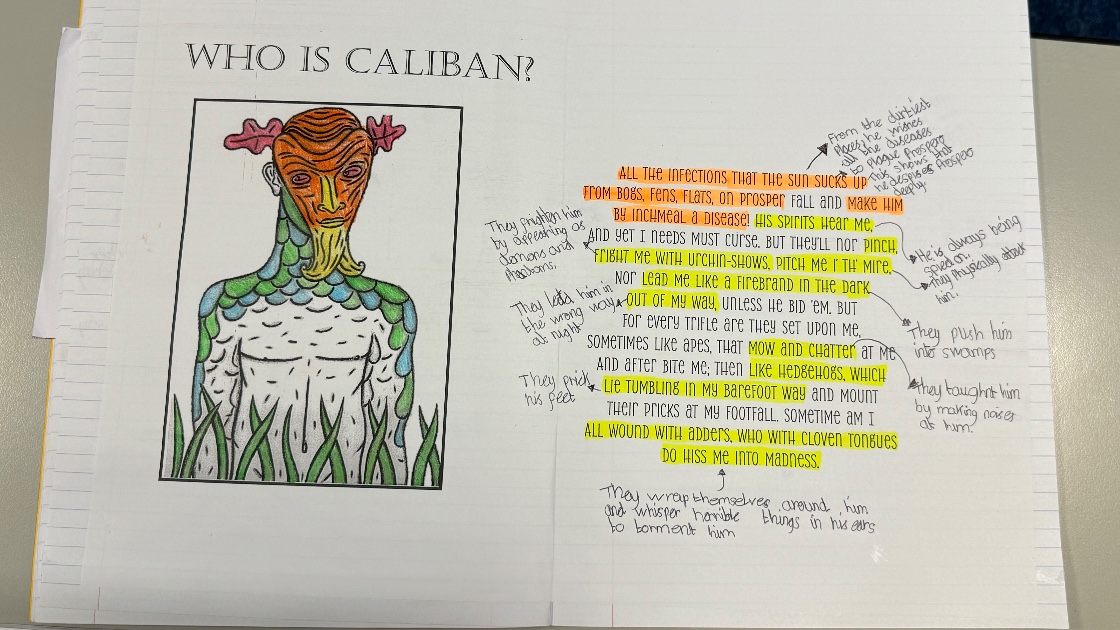 WHO IS CALIBAN?
From the dirtiest
places he wishes
all the diseases
to plague Prospero
This shows that
he despises Prospero
deeply.
ALL THE INFECTIONS THAT THE SUN SUCKS UP
FROM BOGS, FENS, FLATS, ON PROSPER FALL AND MAKE HIM
BY INCHMEAL A DISEASE! HIS SPIRITS HEAR ME,
AND YET I NEEDS MUST CURSE. BUT THEY'LL NOR PINCH,
FRIGHT ME WITH URCHIN-SHOWS, PITCH ME I' TH' MIRE,
NOR LEAD ME LIKE A FIREBRAND IN THE DARK
OUT OF MY WAY, UNLESS HE BID 'EM. BUT
FOR EVERY TRIFLE ARE THEY SET UPON ME,
SOMETIMES LIKE APES, THAT MOW AND CHATTER AT ME
AND AFTER BITE ME; THEN LIKE HEDGEHOGS, WHICH
LIE TUMBLING IN MY BAREFOOT WAY AND MOUNT
THEIR PRICKS AT MY FOOTFALL. SOMETIME AM I
ALL WOUND WITH ADDERS, WHO WITH CLOVEN TONGUES
DO HISS ME INTO MADNESS.
They frighten him
by appearing as
demons and
They lead him in
the wrong way
at night
They prick
his feet
He is always being
spied on.
They physically attack
him.
They push him
into swamps
They taughnt him
by making noises
at him.
They wrap themselves around him
and whisper horrible things in his ears
to torment him